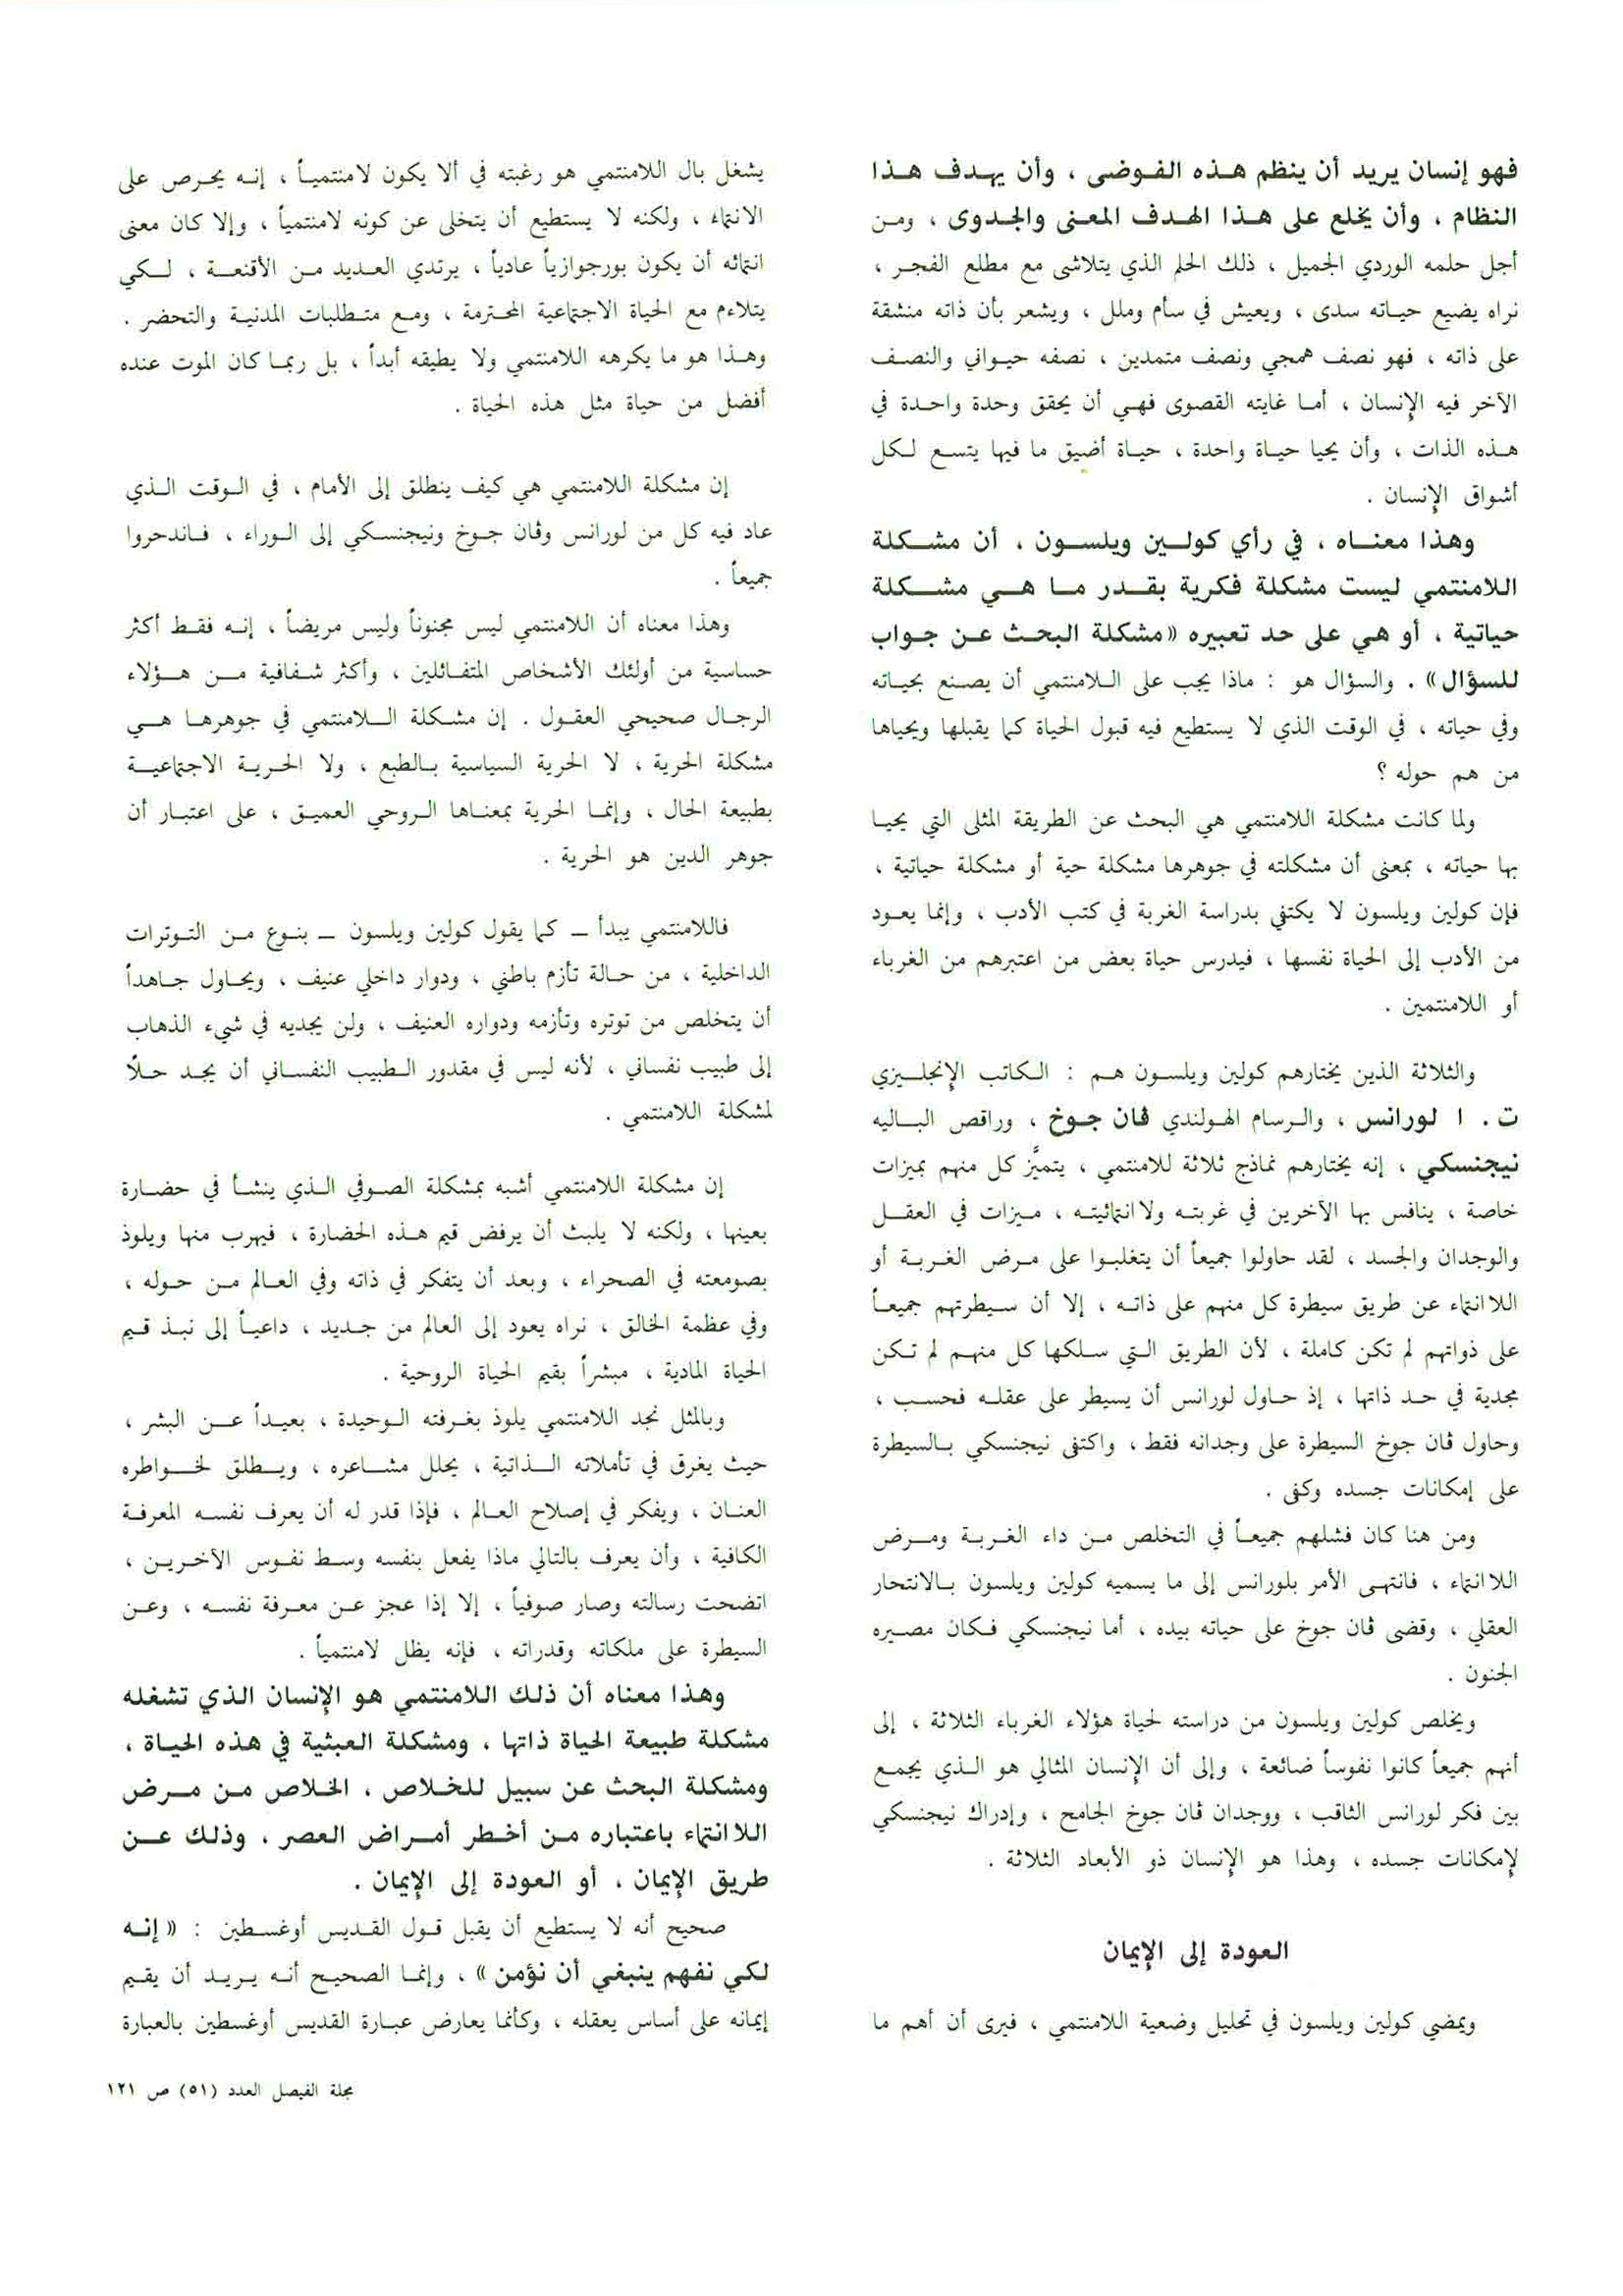 فهو إنسان يريد أن ينظم هذه الفوضى ، وأن يهدف هذا
النظام ، وأن يخلع على هذا الهدف المعنى والجدوى ، ومن
أجل حلمه الوردي الجميل ، ذلك الحلم الذي يتلاشى مع مطلع الفجر ،
نراه يضيع حياته سدى ، ويعيش في سأم وملل ، ويشعر بأن ذاته منشقة
على ذاته ، فهو نصف همجي ونصف متمدين ، نصفه حيواني والنصف
الآخر فيه الإنسان ، أما غايته القصوى فهي أن يحقق وحدة واحدة في
هذه الذات ، وأن يحيا حياة واحدة ، حياة أضيق ما فيها يتسع لكل
أشواق الإنسان .
وهذا معناه ، في رأي كولين ويلسون ، أن مشكلة
اللامنتمي ليست مشكلة فكرية بقدر ما هي مشكلة
حياتية ، أو هي على حد تعبيره «مشكلة البحث عن جواب
للسؤال» . والسؤال هو : ماذا يجب على اللامنتمي أن يصنع بحياته
وفي حياته ، في الوقت الذي لا يستطيع فيه قبول الحياة كما يقبلها ويحياها
من هم حوله ؟
ولما كانت مشكلة اللامنتمي هي البحث عن الطريقة المثلى التي يحيا
بها حياته ، بمعنى أن مشكلته في جوهرها مشكلة حية أو مشكلة حياتية ،
فإن كولين ويلسون لا يكتفي بدراسة الغربة في كتب الأدب ، وإنما يعود
من الأدب إلى الحياة نفسها ، فيدرس حياة بعض من اعتبرهم من الغرباء
أو اللامنتمين .
والثلاثة الذين يختارهم كولين ويلسون هم : الكاتب الإنجليزي
ت . ا لورانس ، والرسام الهولندي ڤان جوخ ، وراقص الباليه
نيجنسكي ، إنه يختارهم نماذج ثلاثة للامنتمي ، يتميَّز كل منهم بميزات
خاصة ، ينافس بها الآخرين في غربته ولا انتمائيته ، ميزات في العقل
والوجدان والجسد ، لقد حاولوا جميعاً أن يتغلبوا على مرض الغربة أو
اللا انتماء عن طريق سيطرة كل منهم على ذاته ، إلا أن سيطرتهم جميعاً
على ذواتهم لم تكن كاملة ، لأن الطريق التي سلكها كل منهم لم تكن
مجدية في حد ذاتها ، إذ حاول لورانس أن يسيطر على عقله فحسب ،
وحاول ڤان جوخ السيطرة على وجدانه فقط ، واكتفى نيجنسكي بالسيطرة
على إمكانات جسده وكفى .
ومن هنا كان فشلهم جميعاً في التخلص من داء الغربة ومرض
اللا انتماء ، فانتهى الأمر بلورانس إلى ما يسميه كولين ويلسون بالانتحار
العقلي ، وقضى ڤان جوخ على حياته بيده ، أما نيجنسكي فكان مصيره
الجنون .
ويخلص كولين ويلسون من دراسته لحياة هؤلاء الغرباء الثلاثة ، إلى
أنهم جميعاً كانوا نفوساً ضائعة ، وإلى أن الإنسان المثالي هو الذي يجمع
بين فكر لورانس الثاقب ، ووجدان ڤان جوخ الجامح ، وإدراك نيجنسكي
لإمكانات جسده ، وهذا هو الإنسان ذو الأبعاد الثلاثة .
العودة إلى الإيمان
ويمضي كولين ويلسون في تحليل وضعية اللامنتمي ، فيرى أن أهم ما
يشغل بال اللامنتمي هو رغبته في ألا يكون لامنتمياً ، إنه يحرص على
الانتماء ، ولكنه لا يستطيع أن يتخلى عن كونه لامنتمياً ، وإلا كان معنى
انتمائه أن يكون بورجوازياً عادياً ، يرتدي العديد من الأقنعة ، لكي
يتلاءم مع الحياة الاجتماعية المحترمة ، ومع متطلبات المدنية والتحضر .
وهذا هو ما يكرهه اللامنتمي ولا يطيقه أبداً ، بل ربما كان الموت عنده
أفضل من حياة مثل هذه الحياة .
إن مشكلة اللامنتمي هي كيف ينطلق إلى الأمام ، في الوقت الذي
عاد فيه كل من لورانس وڤان جوخ ونيجنسكي إلى الوراء ، فاندحروا
جميعاً .
وهذا معناه أن اللامنتمي ليس مجنوناً وليس مريضاً ، إنه فقط أكثر
حساسية من أولئك الأشخاص المتفائلين ، وأكثر شفافية من هؤلاء
الرجال صحيحي العقول . إن مشكلة اللامنتمي في جوهرها هي
مشكلة الحرية ، لا الحرية السياسية بالطبع ، ولا الحرية الاجتماعية
بطبيعة الحال ، وإنما الحرية بمعناها الروحي العميق ، على اعتبار أن
جوهر الدين هو الحرية .
فاللامنتمي يبدأ – كما يقول كولين ويلسون – بنوع من التوترات
الداخلية ، من حالة تأزم باطني ، ودوار داخلي عنيف ، ويحاول جاهداً
أن يتخلص من توتره وتأزمه ودواره العنيف ، ولن يجديه في شيء الذهاب
إلى طبيب نفساني ، لأنه ليس في مقدور الطبيب النفساني أن يجد حلاً
لمشكلة اللامنتمي .
إن مشكلة اللامنتمي أشبه بمشكلة الصوفي الذي ينشأ في حضارة
بعينها ، ولكنه لا يلبث أن يرفض قيم هذه الحضارة ، فيهرب منها ويلوذ
بصومعته في الصحراء ، وبعد أن يتفكر في ذاته وفي العالم من حوله ،
وفي عظمة الخالق ، نراه يعود إلى العالم من جديد ، داعياً إلى نبذ قيم
الحياة المادية ، مبشراً بقيم الحياة الروحية .
وبالمثل نجد اللامنتمي يلوذ بغرفته الوحيدة ، بعيداً عن البشر ،
حيث يغرق في تأملاته الذاتية ، يحلل مشاعره ، ويطلق لخواطره
العنان ، ويفكر في إصلاح العالم ، فإذا قدر له أن يعرف نفسه المعرفة
الكافية ، وأن يعرف بالتالي ماذا يفعل بنفسه وسط نفوس الآخرين ،
اتضحت رسالته وصار صوفياً ، إلا إذا عجز عن معرفة نفسه ، وعن
السيطرة على ملكاته وقدراته ، فإنه يظل لامنتمياً .
وهذا معناه أن ذلك اللامنتمي هو الإنسان الذي تشغله
مشكلة طبيعة الحياة ذاتها ، ومشكلة العبثية في هذه الحياة ،
ومشكلة البحث عن سبيل للخلاص ، الخلاص من مرض
اللا انتماء باعتباره من أخطر أمراض العصر ، وذلك عن
طريق الإيمان ، أو العودة إلى الإيمان .
صحيح أنه لا يستطيع أن يقبل قول القديس أوغسطين : « إنه
لكي نفهم ينبغي أن نؤمن » ، وإنما الصحيح أنه يريد أن يقيم
إيمانه على أساس يعقله ، وكأنما يعارض عبارة القديس أوغسطين بالعبارة
مجلة الفيصل العدد (٥١) ص ١٢١